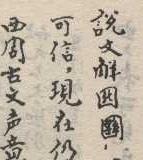 說文解因圖，
可信，現在仍
西周古文声